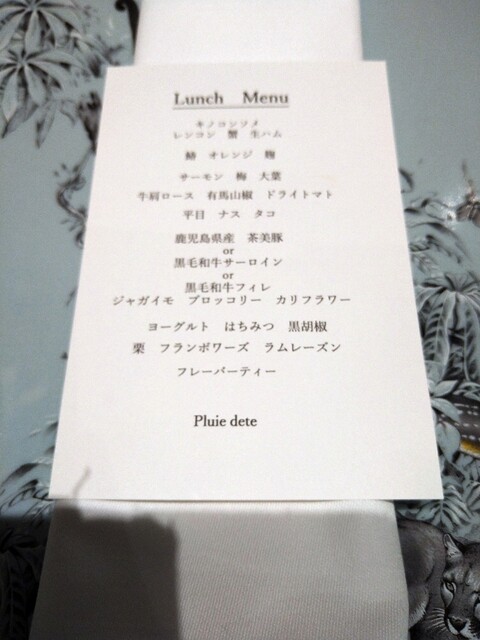 Lunch Menu
キノコンソメ
レンコン 蟹 生ハム
鰆 オレンジ 麹
サーモン 梅 大葉
牛肩ロース 有馬山椒 ドライトマト
平目 ナス タコ
鹿児島県産 茶美豚
or
黒毛和牛サーロイン
or
黒毛和牛フィレ
ジャガイモ ブロッコリー カリフラワー
ヨーグルト はちみつ 黒胡椒
栗 フランボワーズ ラムレーズン
フレーバーティー
Pluie dete